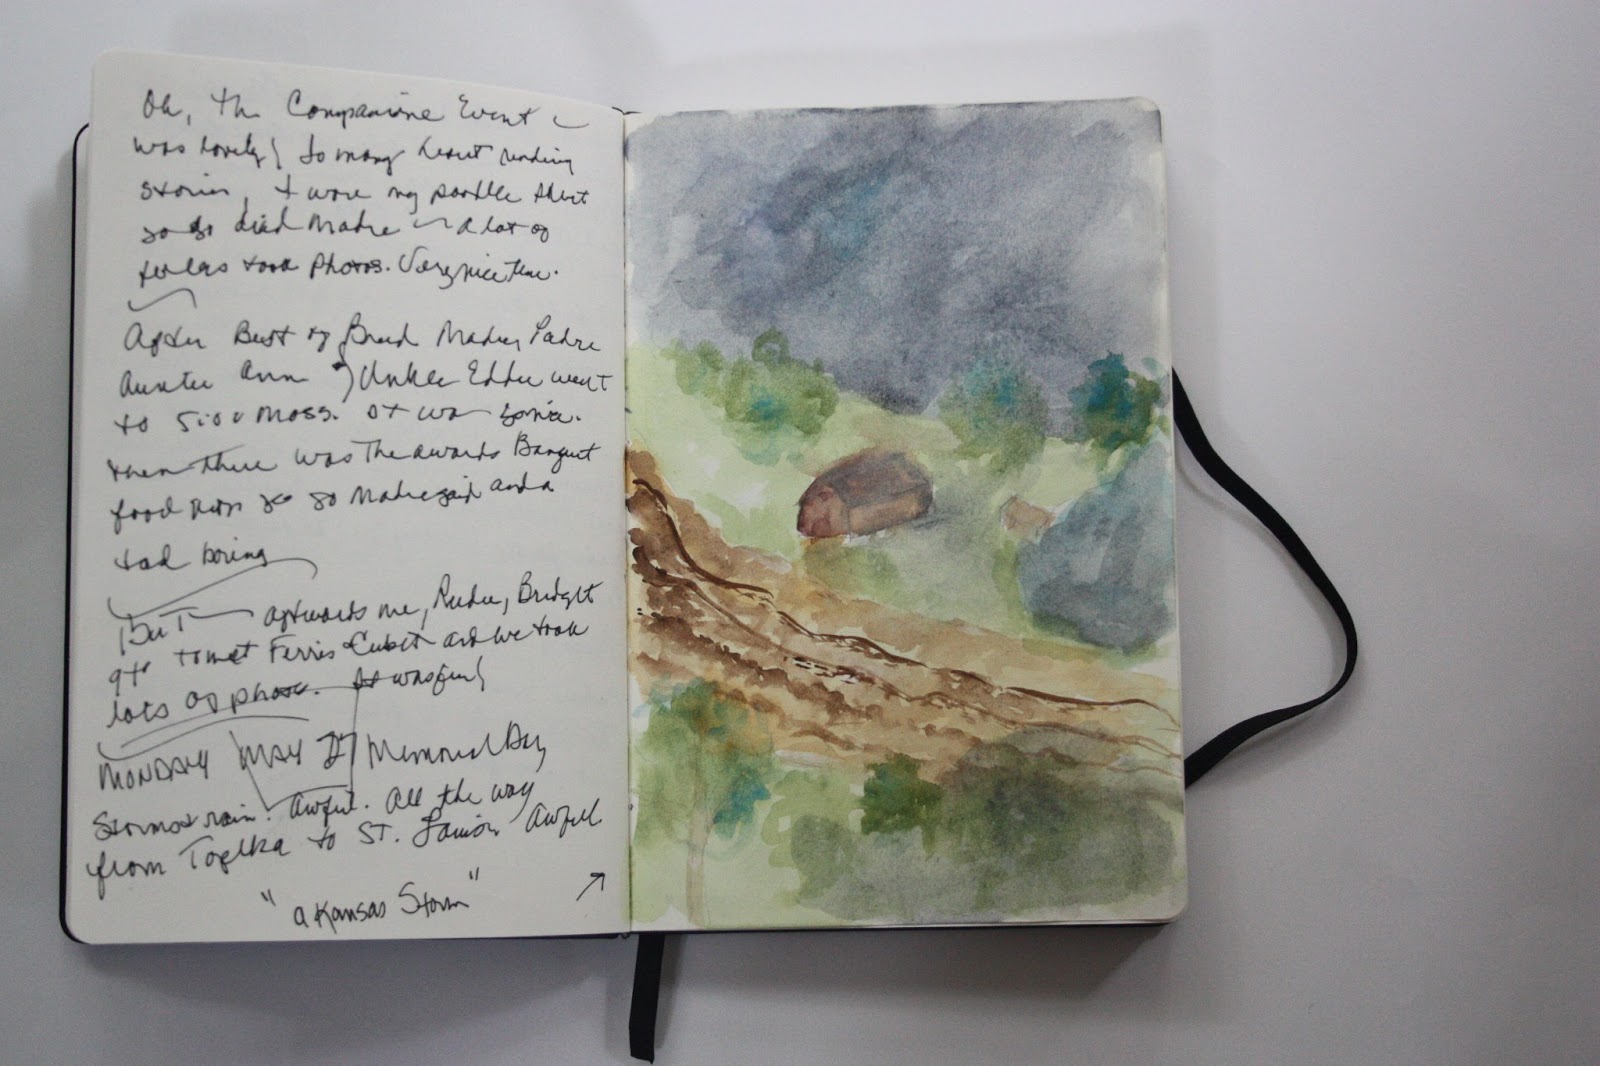 Oh, the Companion Event
was lovely! So many heart rending
stories, I wore my poodle skirt
so did Madre ~ a lot of
took photos. Very nice time.
After Best of Breed Madre, Padre
Auntie Ann & Unkle Eddie went
to Moss. It was
then there was The awards Banquet
food was so so Madre said and a
tad boring
BUT afterwards me, Rudie, Bridgett
got to meet Ferris & Cubit and we took
lots of photos. It was fun!
MONDAY MAY 27 Memorial Day
Storms & rain. Awful. All the way
from Topeka to ST. Louis. Awful.
"a Kansas Storm"